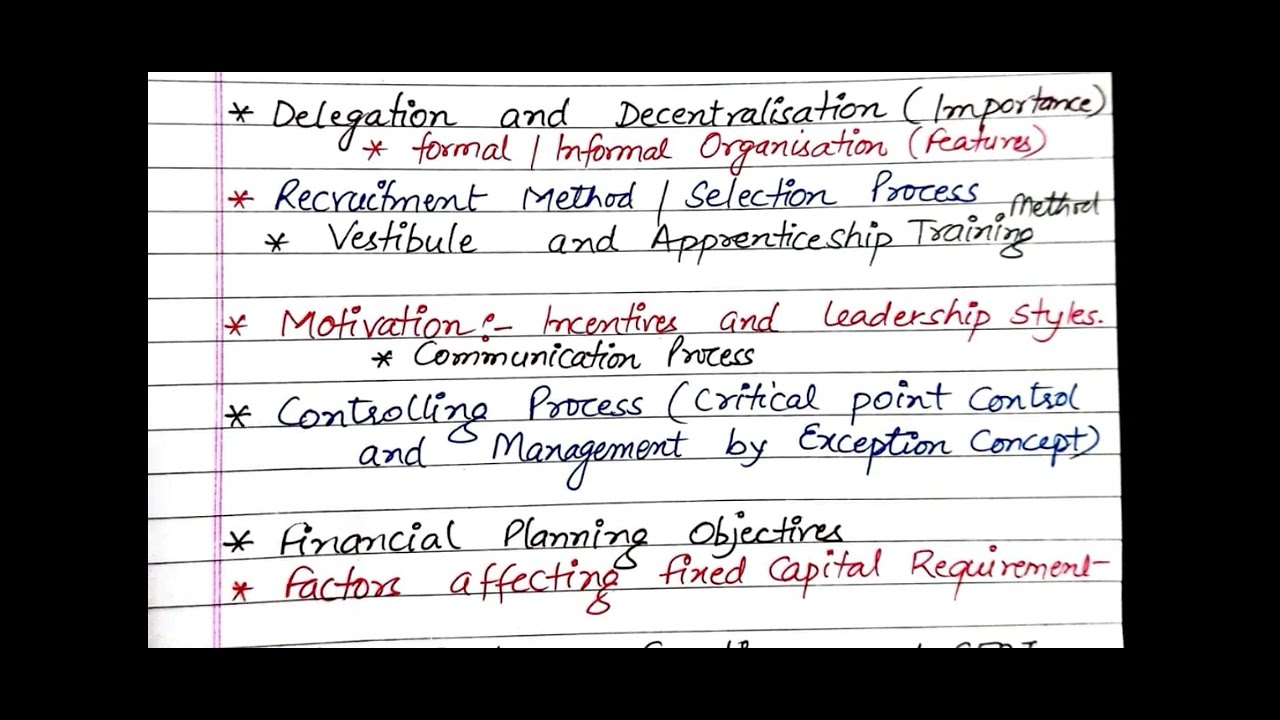 * Delegation and Decentralisation (Importance)
* formal / Informal Organisation (features)
* Recruitment Method / Selection Process
* Vestibule and Apprenticeship Training Method
* Motivation:- Incentives and leadership styles.
* Communication Process
* Controlling Process (Critical point Control
and Management by Exception Concept)
* Financial Planning Objectives
* factors affecting fixed Capital Requirement-